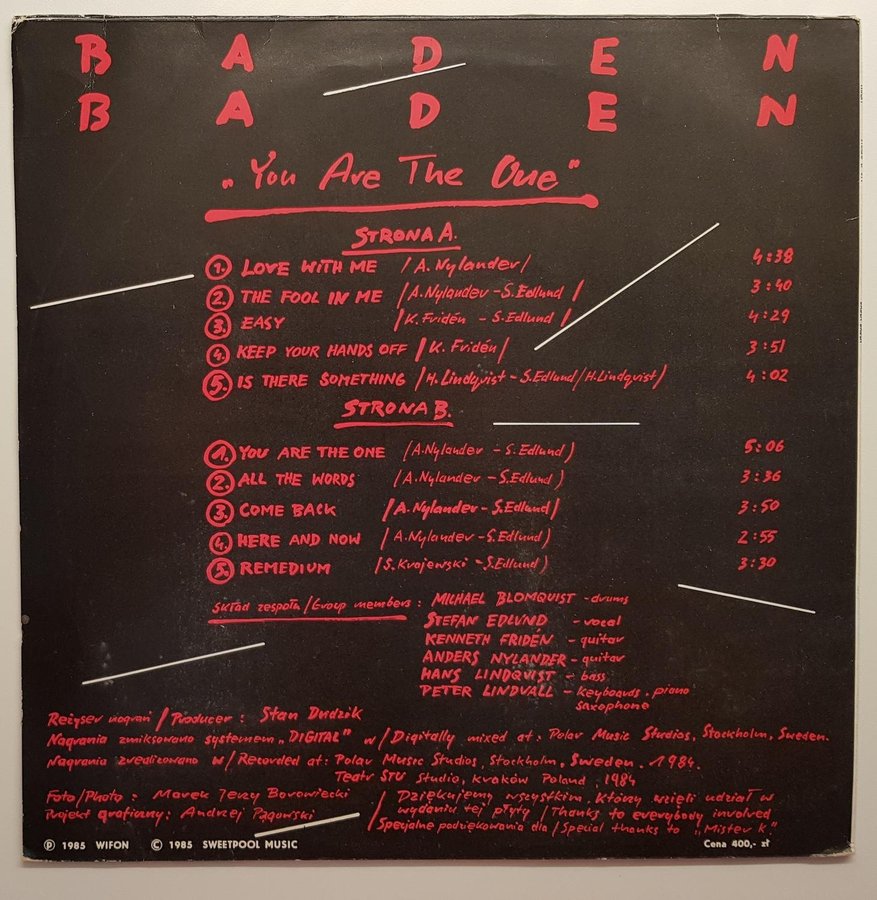 BADEN
BADEN
„You Are The One"
STRONA A.
1. LOVE WITH ME /A. Nylander/ 4:38
2. THE FOOL IN ME /A. Nylander - S. Edlund/ 3:40
3. EASY /K. Fridén - S. Edlund/ 4:29
4. KEEP YOUR HANDS OFF /K. Fridén/ 3:51
5. IS THERE SOMETHING /H. Lindqvist - S. Edlund/H. Lindqvist/ 4:02
STRONA B.
1. YOU ARE THE ONE /A. Nylander - S. Edlund/ 5:06
2. ALL THE WORDS /A. Nylander - S. Edlund/ 3:36
3. COME BACK /A. Nylander - S. Edlund/ 3:50
4. HERE AND NOW /A. Nylander - S. Edlund/ 2:55
5. REMEDIUM /S. Krajewski - S. Edlund/ 3:30
Skład zespołu/Group members: MICHAEL BLOMQUIST - drums
STEFAN EDLUND - vocal
KENNETH FRIDÉN - guitar
ANDERS NYLANDER - guitar
HANS LINDQVIST - bass
PETER LINDVALL - keyboards, piano
saxophone
Reżyser nagrań/Producer: Stan Dudzik
Nagrania zmiksowano systemem „DIGITAL" w/Digitally mixed at: Polar Music Studios, Stockholm, Sweden.
Nagrania zrealizowano w/Recorded at: Polar Music Studios, Stockholm, Sweden. 1984.
Teatr STU Studio, Kraków Poland, 1984
Foto/Photo: Marek Jerzy Borowiecki
Projekt graficzny: Andrzej Pągowski
/Dziękujemy wszystkim, którzy wzięli udział w
wydaniu tej płyty/Thanks to everybody involved
/Specjalne podziękowania dla/Special thanks to „Mister K"
Ⓟ 1985 WIFON © 1985 SWEETPOOL MUSIC
Cena 400,- zł